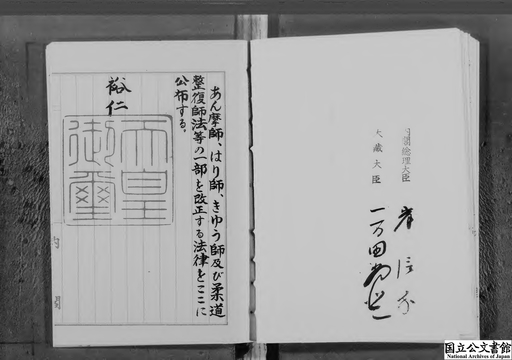 あん摩師、はり師、きゆう師及び柔道
整復師法等の一部を改正する法律をここに
公布する。
裕仁
天皇
御璽
内閣総理大臣
岸信介
大蔵大臣
一万田尚登
国立公文書館
National Archives of Japan